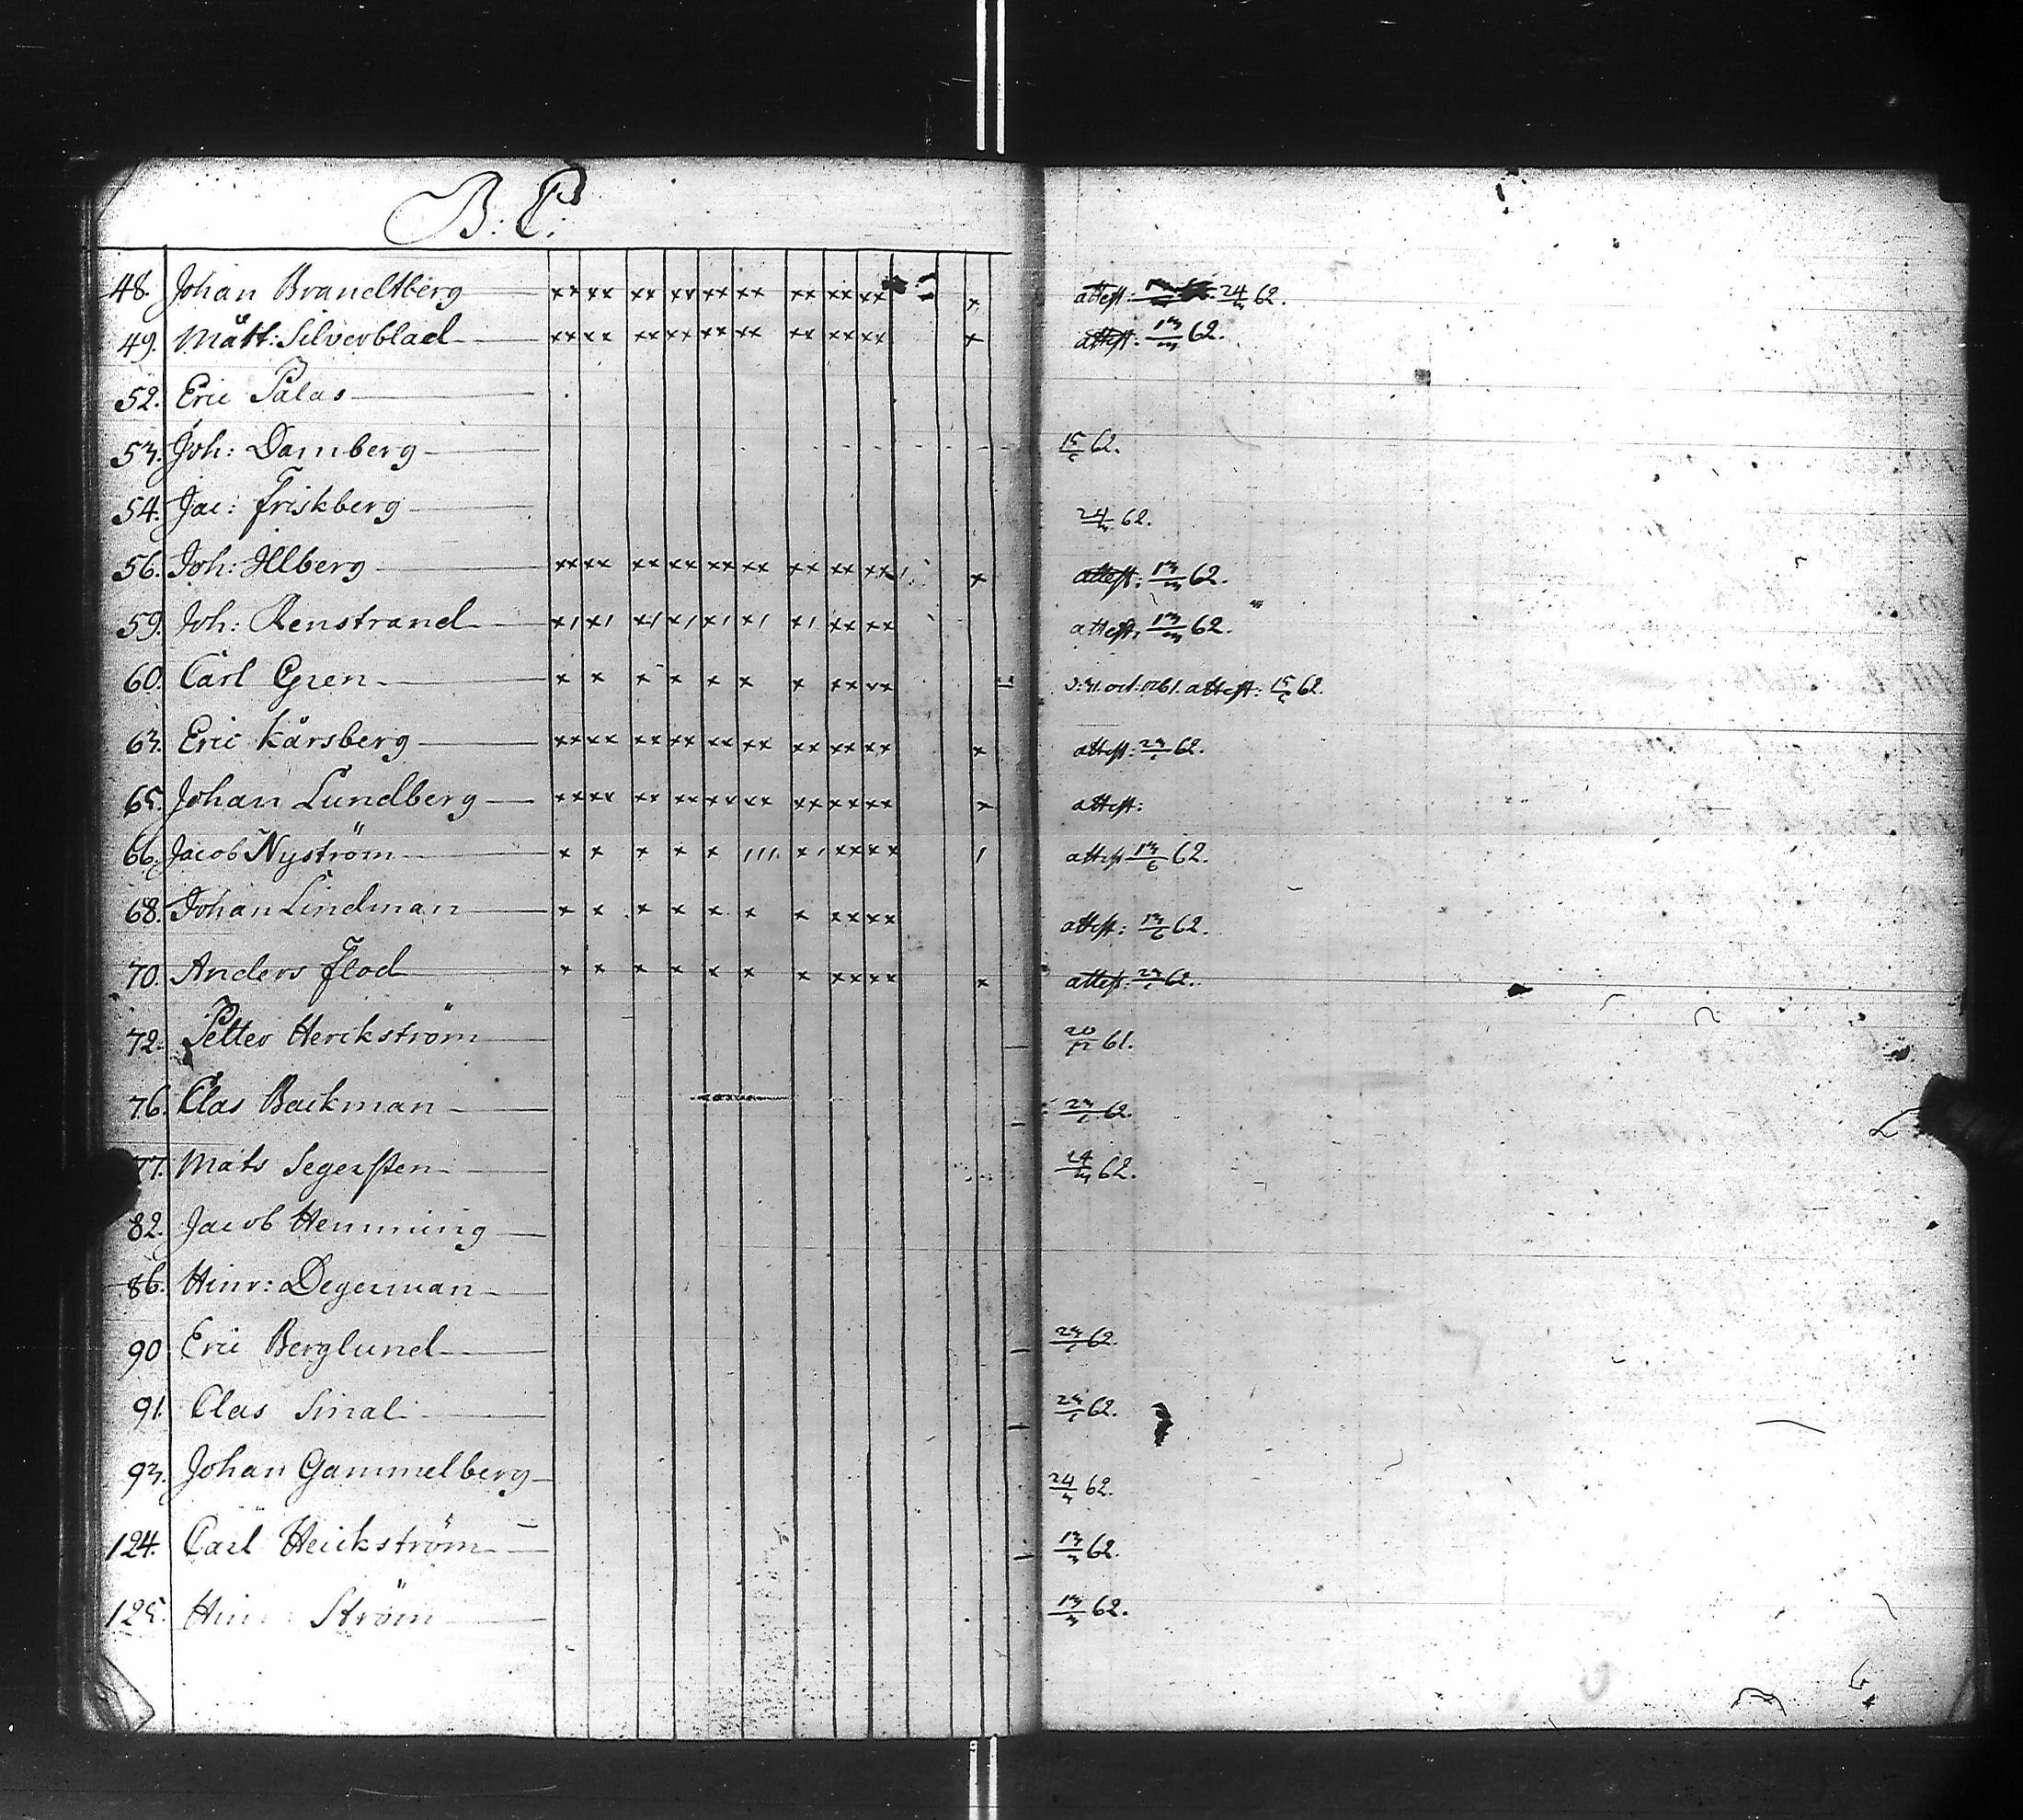 B: C:
48. Johan Brandtberg xx xx xx xx xx xx xx xx xx x attest: 24/3 62.
49. Mått: Silverblad xx xx xx xx xx xx xx xx xx x attest: 13/3 62.
52. Eric Palas
53. Joh: Damberg 15/6 62.
54. Jac: Friskberg 24/3 62.
56. Joh: Illberg xx xx xx xx xx xx xx xx xx x attest: 13/3 62.
59. Joh: Renstrand x/ x/ x/ x/ x/ x/ x/ xx xx attest, 13/3 62.
60. Carl Gren x x x x x x x xx xx d: 31. oct: 1761. attest: 15/6 62.
63. Eric Kårsberg xx xx xx xx xx xx xx xx xx x attest: 23/6 62.
65. Johan Lundberg xx xx xx xx xx xx xx xx xx x attest:
66. Jacob Nyström x x x x x /// x/ xx xx / attest 13/6 62.
68. Johan Lindman x x x x x x x xx xx attest: 13/6 62.
70. Anders Flod x x x x x x x xx xx x attest: 23/6 62.
72. Petter Herckström 20/12 61.
76. Clas Backman 23/6 62.
77. Mats Segersten 24/3 62.
82. Jacob Hemming
86. Hinr: Degerman
90 Eric Berglund 23/6 62.
91. Clas Smal 23/6 62.
93. Johan Gammelberg 24/3 62.
124. Carl Herckström 13/3 62.
125. Hinr: Ström 13/3 62.